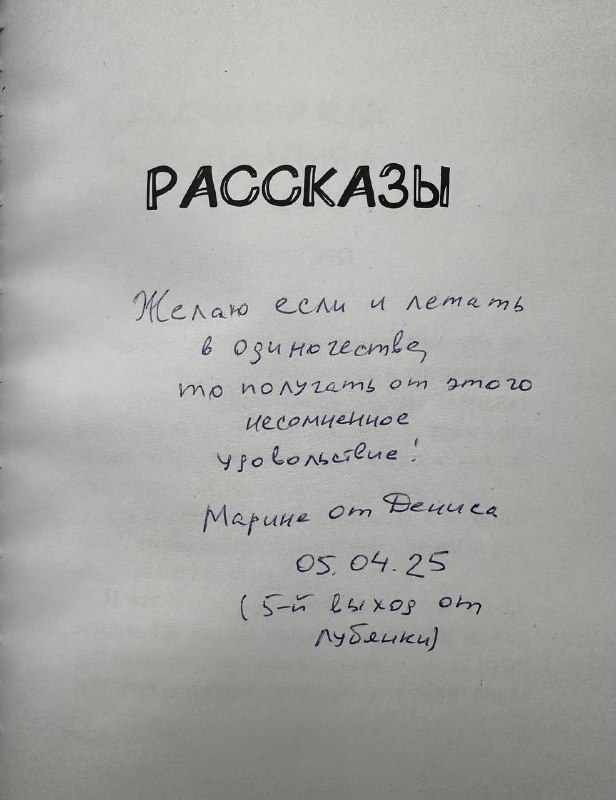 РАССКАЗЫ
Желаю если и летать
в одиночестве,
то получать от этого
несомненное
удовольствие!
Марине от Дениса
05.04.25
(5-й выход от
Лубянки)